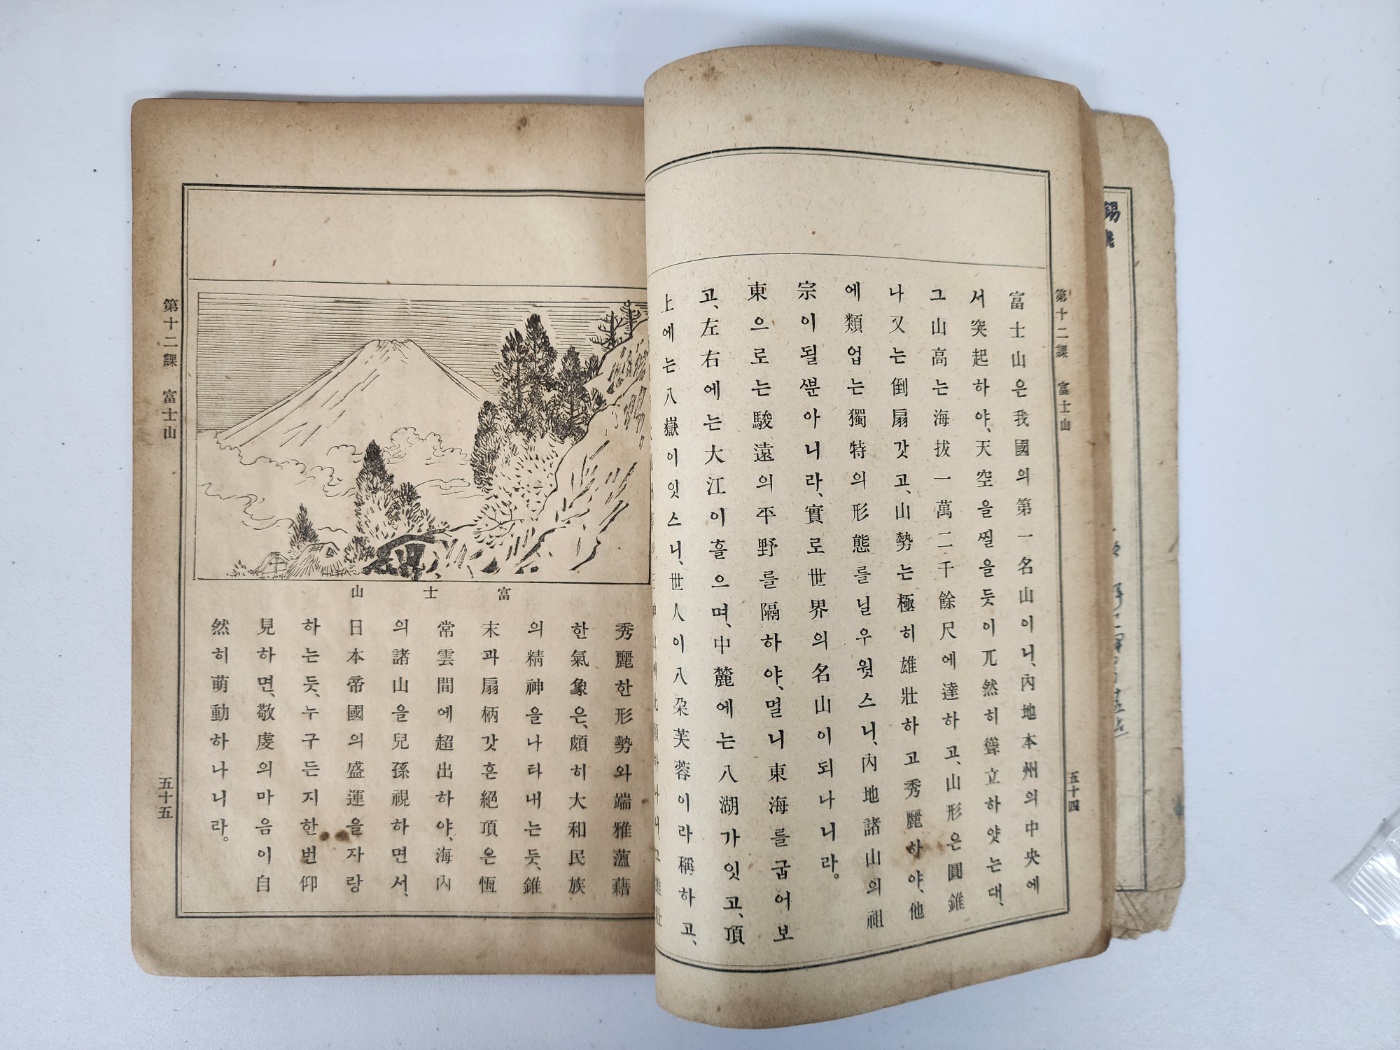 第十二課 富士山
五十四
富士山은我國의第一名山이니、內地本州의中央에
서突起하야、天空을찔을듯이兀然히聳立하얏는대、
그山高는海拔一萬二千餘尺에達하고、山形은圓錐
나又는倒扇갓고、山勢는極히雄壯하고秀麗하야、他
에類업는獨特의形態를닐우윗스니、內地諸山의祖
宗이될ᄲᅮᆫ아니라、實로世界의名山이되나니라。
東으로는駿遠의平野를隔하야、멀니東海를굽어보
고、左右에는大江이흘으며、中麓에는八湖가잇고、頂
上에는八嶽이잇스니、世人이八朶芙蓉이라稱하고、
第十二課 富士山
五十五
富士山
秀麗한形勢와端雅蘊藉
한氣象은、頗히大和民族
의精神을나타내는듯、錐
末과扇柄갓흔絕頂은恆
常雲間에超出하야、海內
의諸山을兒孫視하면서、
日本帝國의盛運을자랑
하는듯、누구든지한번仰
見하면、敬虔의마음이自
然히萌動하나니라。